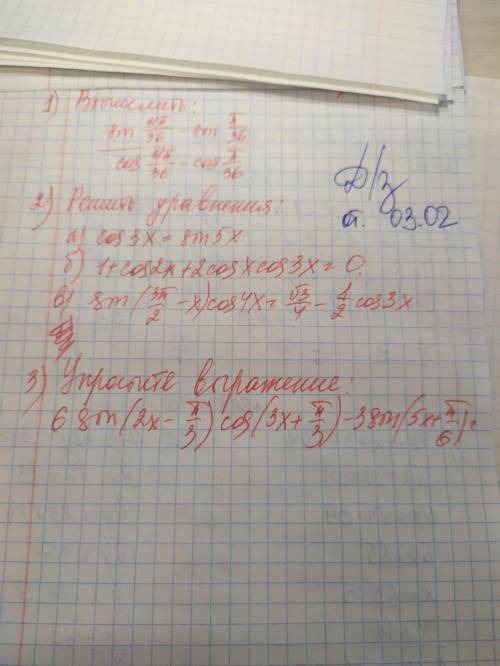 1) Вычислить:
sin 11π/36 - sin π/36
cos 11π/36 - cos π/36
Д/з
от. 03.02
2) Решить уравнения:
а) cos3x = sin5x
б) 1+cos2x+2cosxcos3x=0.
в) sin(3π/2 - x)cos4x = √3/4 - 1/2 cos3x
3) Упростите выражение:
6 sin(2x - π/3) cos(3x + π/3) - 3sin(5x + π/6) =